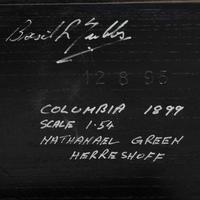 Basil L Gubbs
12 8 95
COLUMBIA 1899
SCALE 1-54
NATHANAEL GREEN
HERRESHOFF